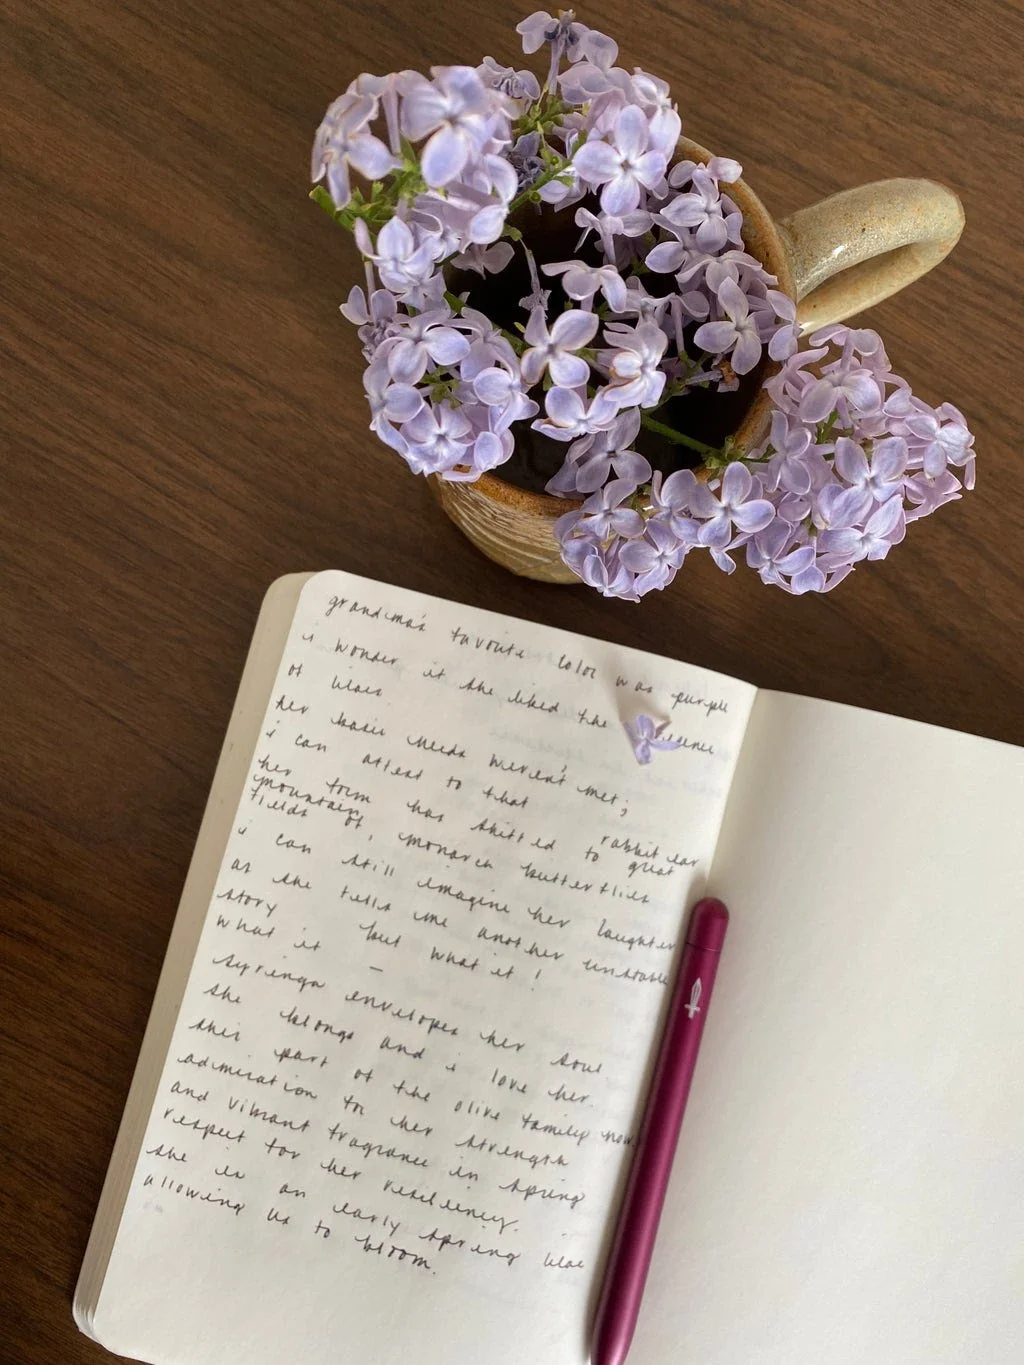 grandma's favorite color was purple
i wonder if she liked the
of lilacs
her basic needs weren't met;
i can attest to that
her form has shifted to great
mountains, rabbit ear
fields of monarch butterflies
i can still imagine her laughter
as she tells me another unstable
story
what if – but what if!
syringa envelopes her soul
she belongs and i love her.
she's part of the olive family now
admiration for her strength
and vibrant fragrance in spring
respect for her resiliency.
she is an early spring lilac
allowing us to bloom.